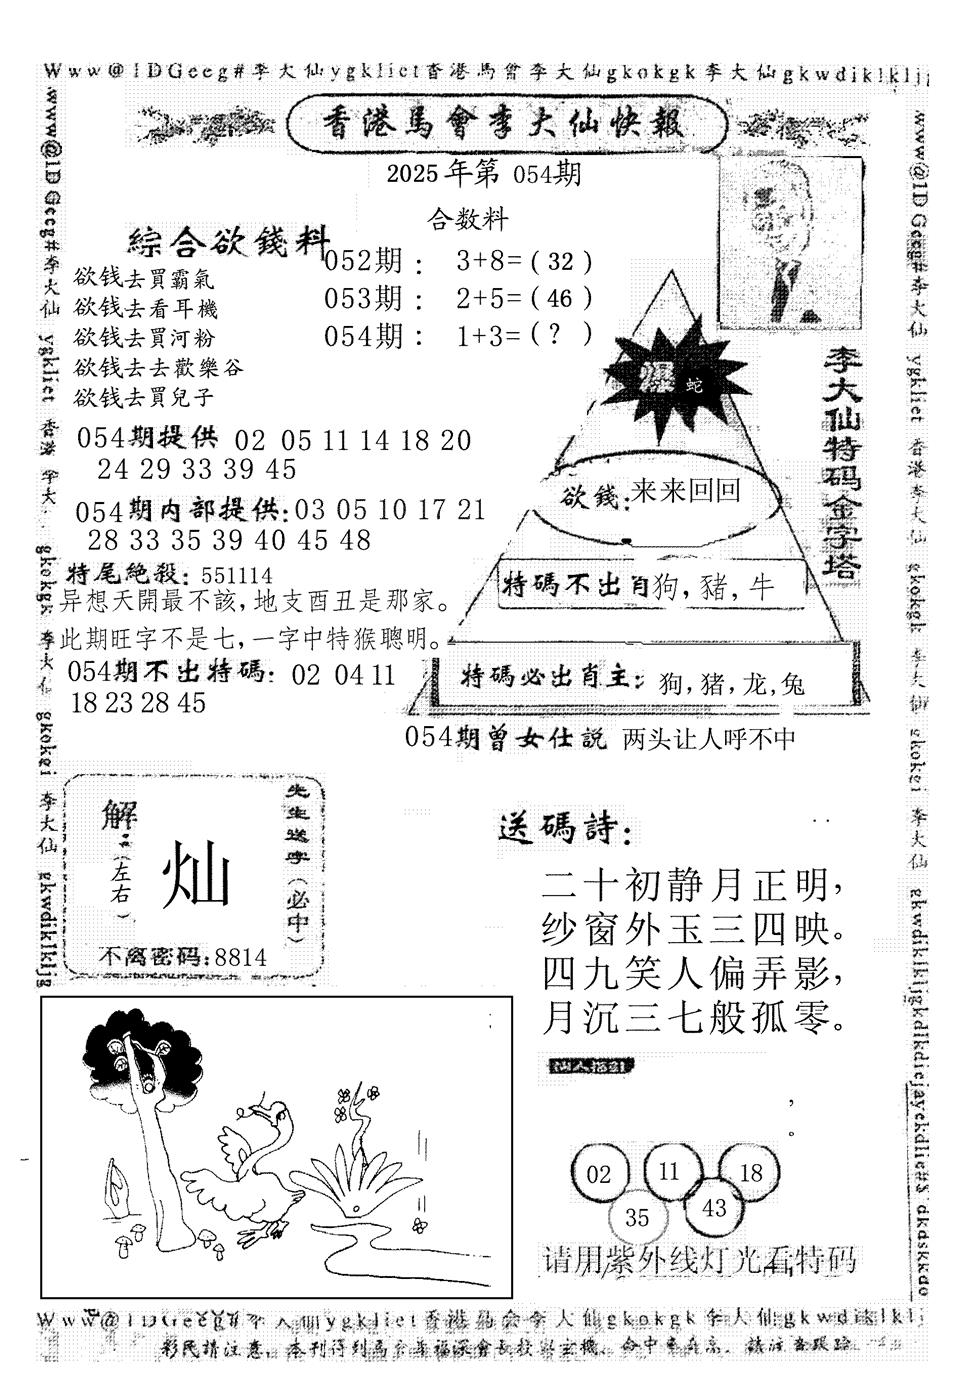 Www@1DGeeg#李大仙ygkliet香港馬會李大仙gkokgk李大仙gkwdiklkljg
香港馬會李大仙快報
2025年第 054期
合数料
綜合欲錢料
052期： 3+8=(32)
053期： 2+5=(46)
054期： 1+3=(?)
欲钱去買霸氣
欲钱去看耳機
欲钱去買河粉
欲钱去去歡樂谷
欲钱去買兒子
054期提供 02 05 11 14 18 20
24 29 33 39 45
054期内部提供:03 05 10 17 21
28 33 35 39 40 45 48
特尾絶殺: 551114
异想天開最不該,地支酉丑是那家。
此期旺字不是七,一字中特猴聰明。
054期不出特碼: 02 04 11
18 23 28 45
爆 蛇
欲錢:来来回回
特碼不出肖狗,豬,牛
特碼必出肖主: 狗,猪,龙,兔
李大仙特码金字塔
054期曾女仕説 两头让人呼不中
解:
(左右)
灿
先生送字(必中)
不离密码:8814
送碼詩:
二十初静月正明,
纱窗外玉三四映。
四九笑人偏弄影,
月沉三七般孤零。
仙人指引
,
。
02 11 18
35 43
请用紫外线灯光看特码
www@1DGeeg#李大仙 ygkliet 香港 李大 gkokgk 李大仙 gkokei 李大仙 gkwdiklkljg
www@1DGeeg#李大仙 ygkliet 香港李大仙 gkokgk 李大仙 gkokei 李大仙 gkwdiklkljgkdlkdiejayekdlie#$ dkdskkdo